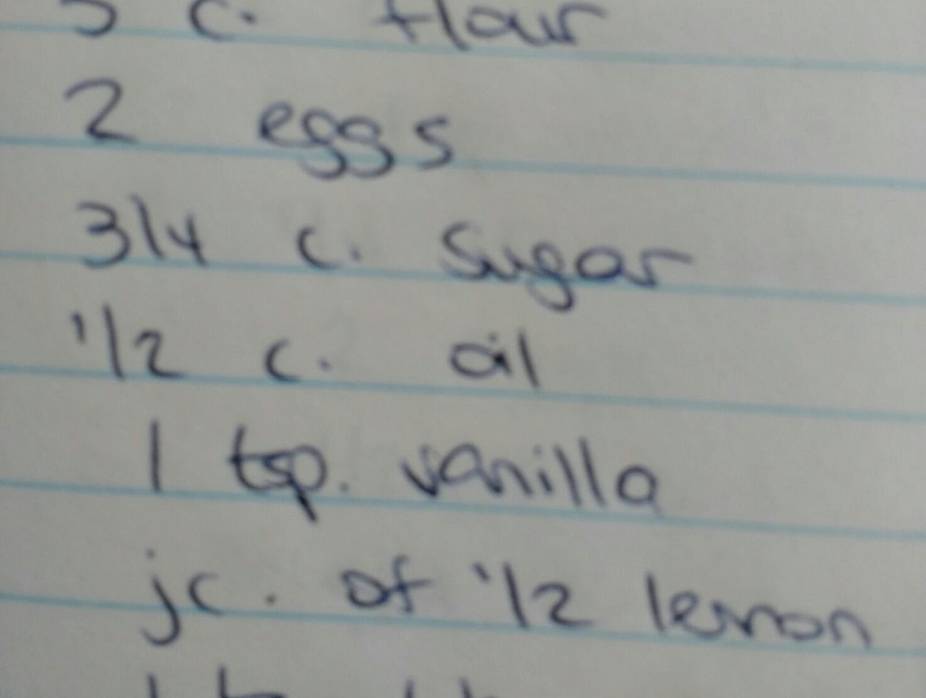 c. flour
2 eggs
3/4 c. sugar
1/2 c. oil
1 tsp. vanilla
jc. of 1/2 lemon